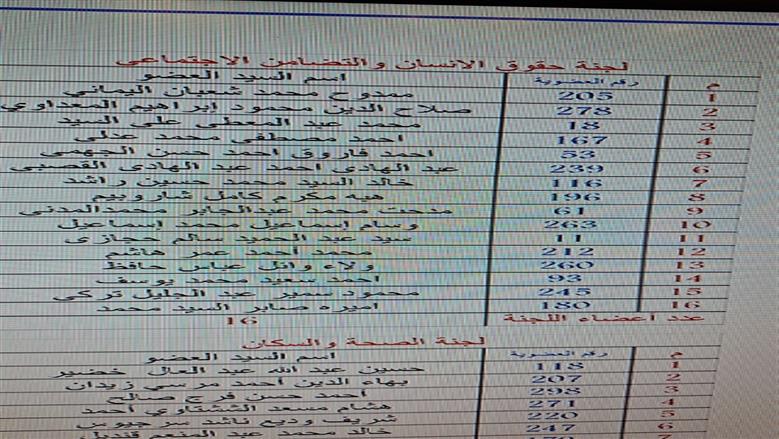 لجنة حقوق الانسان والتضامن الاجتماعى
م رقم العضوية اسم السيد العضو
1 205 ممدوح محمد شعبان اليماني
2 278 صلاح الدين محمود ابراهيم المعداوي
3 18 محمد عبد المعطى على السيد
4 167 احمد مصطفى محمد عدلى
5 53 احمد فاروق احمد حسن الجهمى
6 239 عبد الهادى احمد عبد الهادى القصبى
7 116 خالد السيد محمد حسين راشد
8 196 هبه مكرم كامل شاروبيم
9 61 مدحت محمد عبدالجابر محمدالمدنى
10 263 وسام إسماعيل محمد إسماعيل
11 11 سيد عبد الحميد سالم حجازى
12 212 محمد أحمد عمر هاشم
13 260 ولاء وائل عباس حافظ
14 93 احمد سعيد محمد يوسف
15 245 محمود سمير عبد الجليل تركى
16 180 اميره صابر السيد محمد
عدد اعضاء اللجنة 16
لجنة الصحة والسكان
م رقم العضوية اسم السيد العضو
1 118 حسين عبد الله عبد العال خضير
2 207 بهاء الدين أحمد مرسي زيدان
3 298 أحمد حسن فرج صالح
4 271 هشام مسعد الششتاوي أحمد
5 220 شريف وديع ناشد سرجيوس
6 247 خالد محمد عبد المنعم قنديل